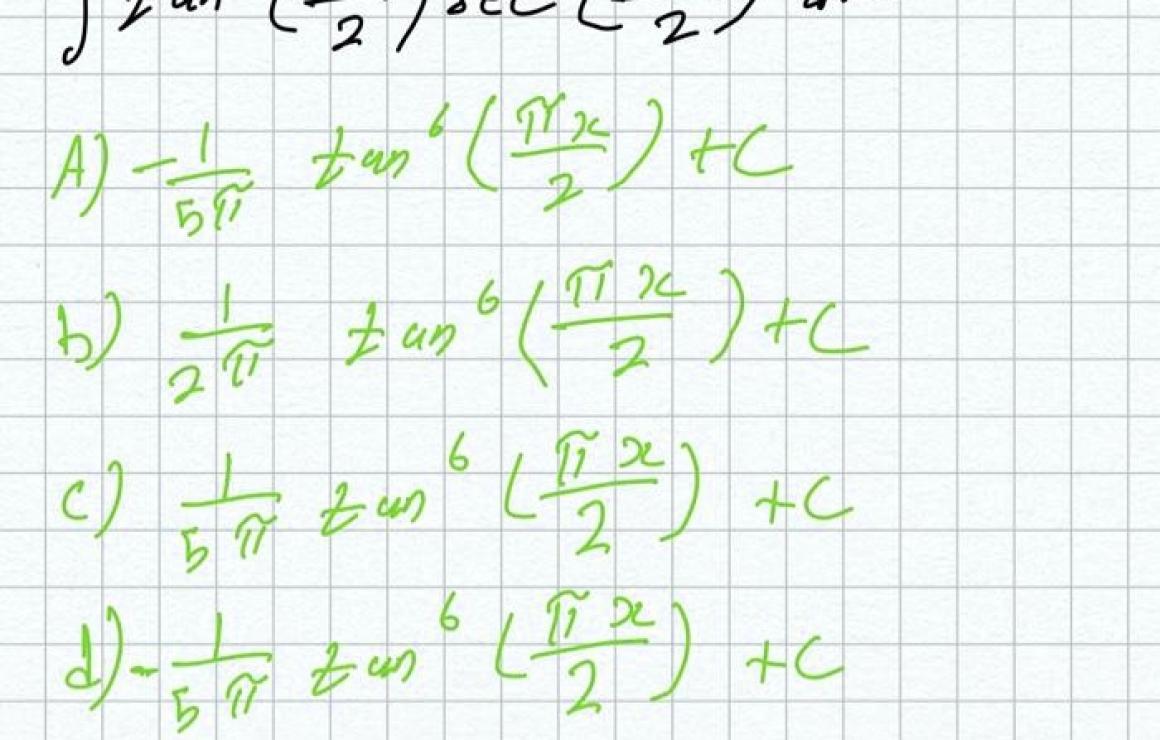 ∫ tan (/2) sec (/2)
A) -1/5π tan^6 (πx/2) +C
b) 1/2π tan^6 (πx/2) +C
c) 1/5π tan^6 (πx/2) +C
d) -1/5π tan^6 (πx/2) +C